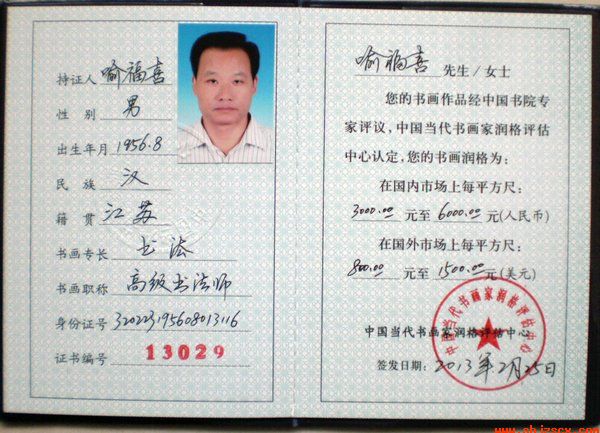 持证人 喻福喜
性别 男
出生年月 1956.8
民族 汉
籍贯 江苏
书画专长 书法
书画职称 高级书法师
身份证号 320223195608013116
证书编号 13029
喻福喜 先生/女士
您的书画作品经中国书院专
家评议,中国当代书画家润格评估
中心认定,您的书画润格为:
在国内市场上每平方尺:
3000.00 元至 6000.00 元(人民币)
在国外市场上每平方尺:
800.00 元至 1500.00 元(美元)
中国当代书画家润格评估中心
签发日期: 2013年2月25日
中国当代书画家润格评估中心